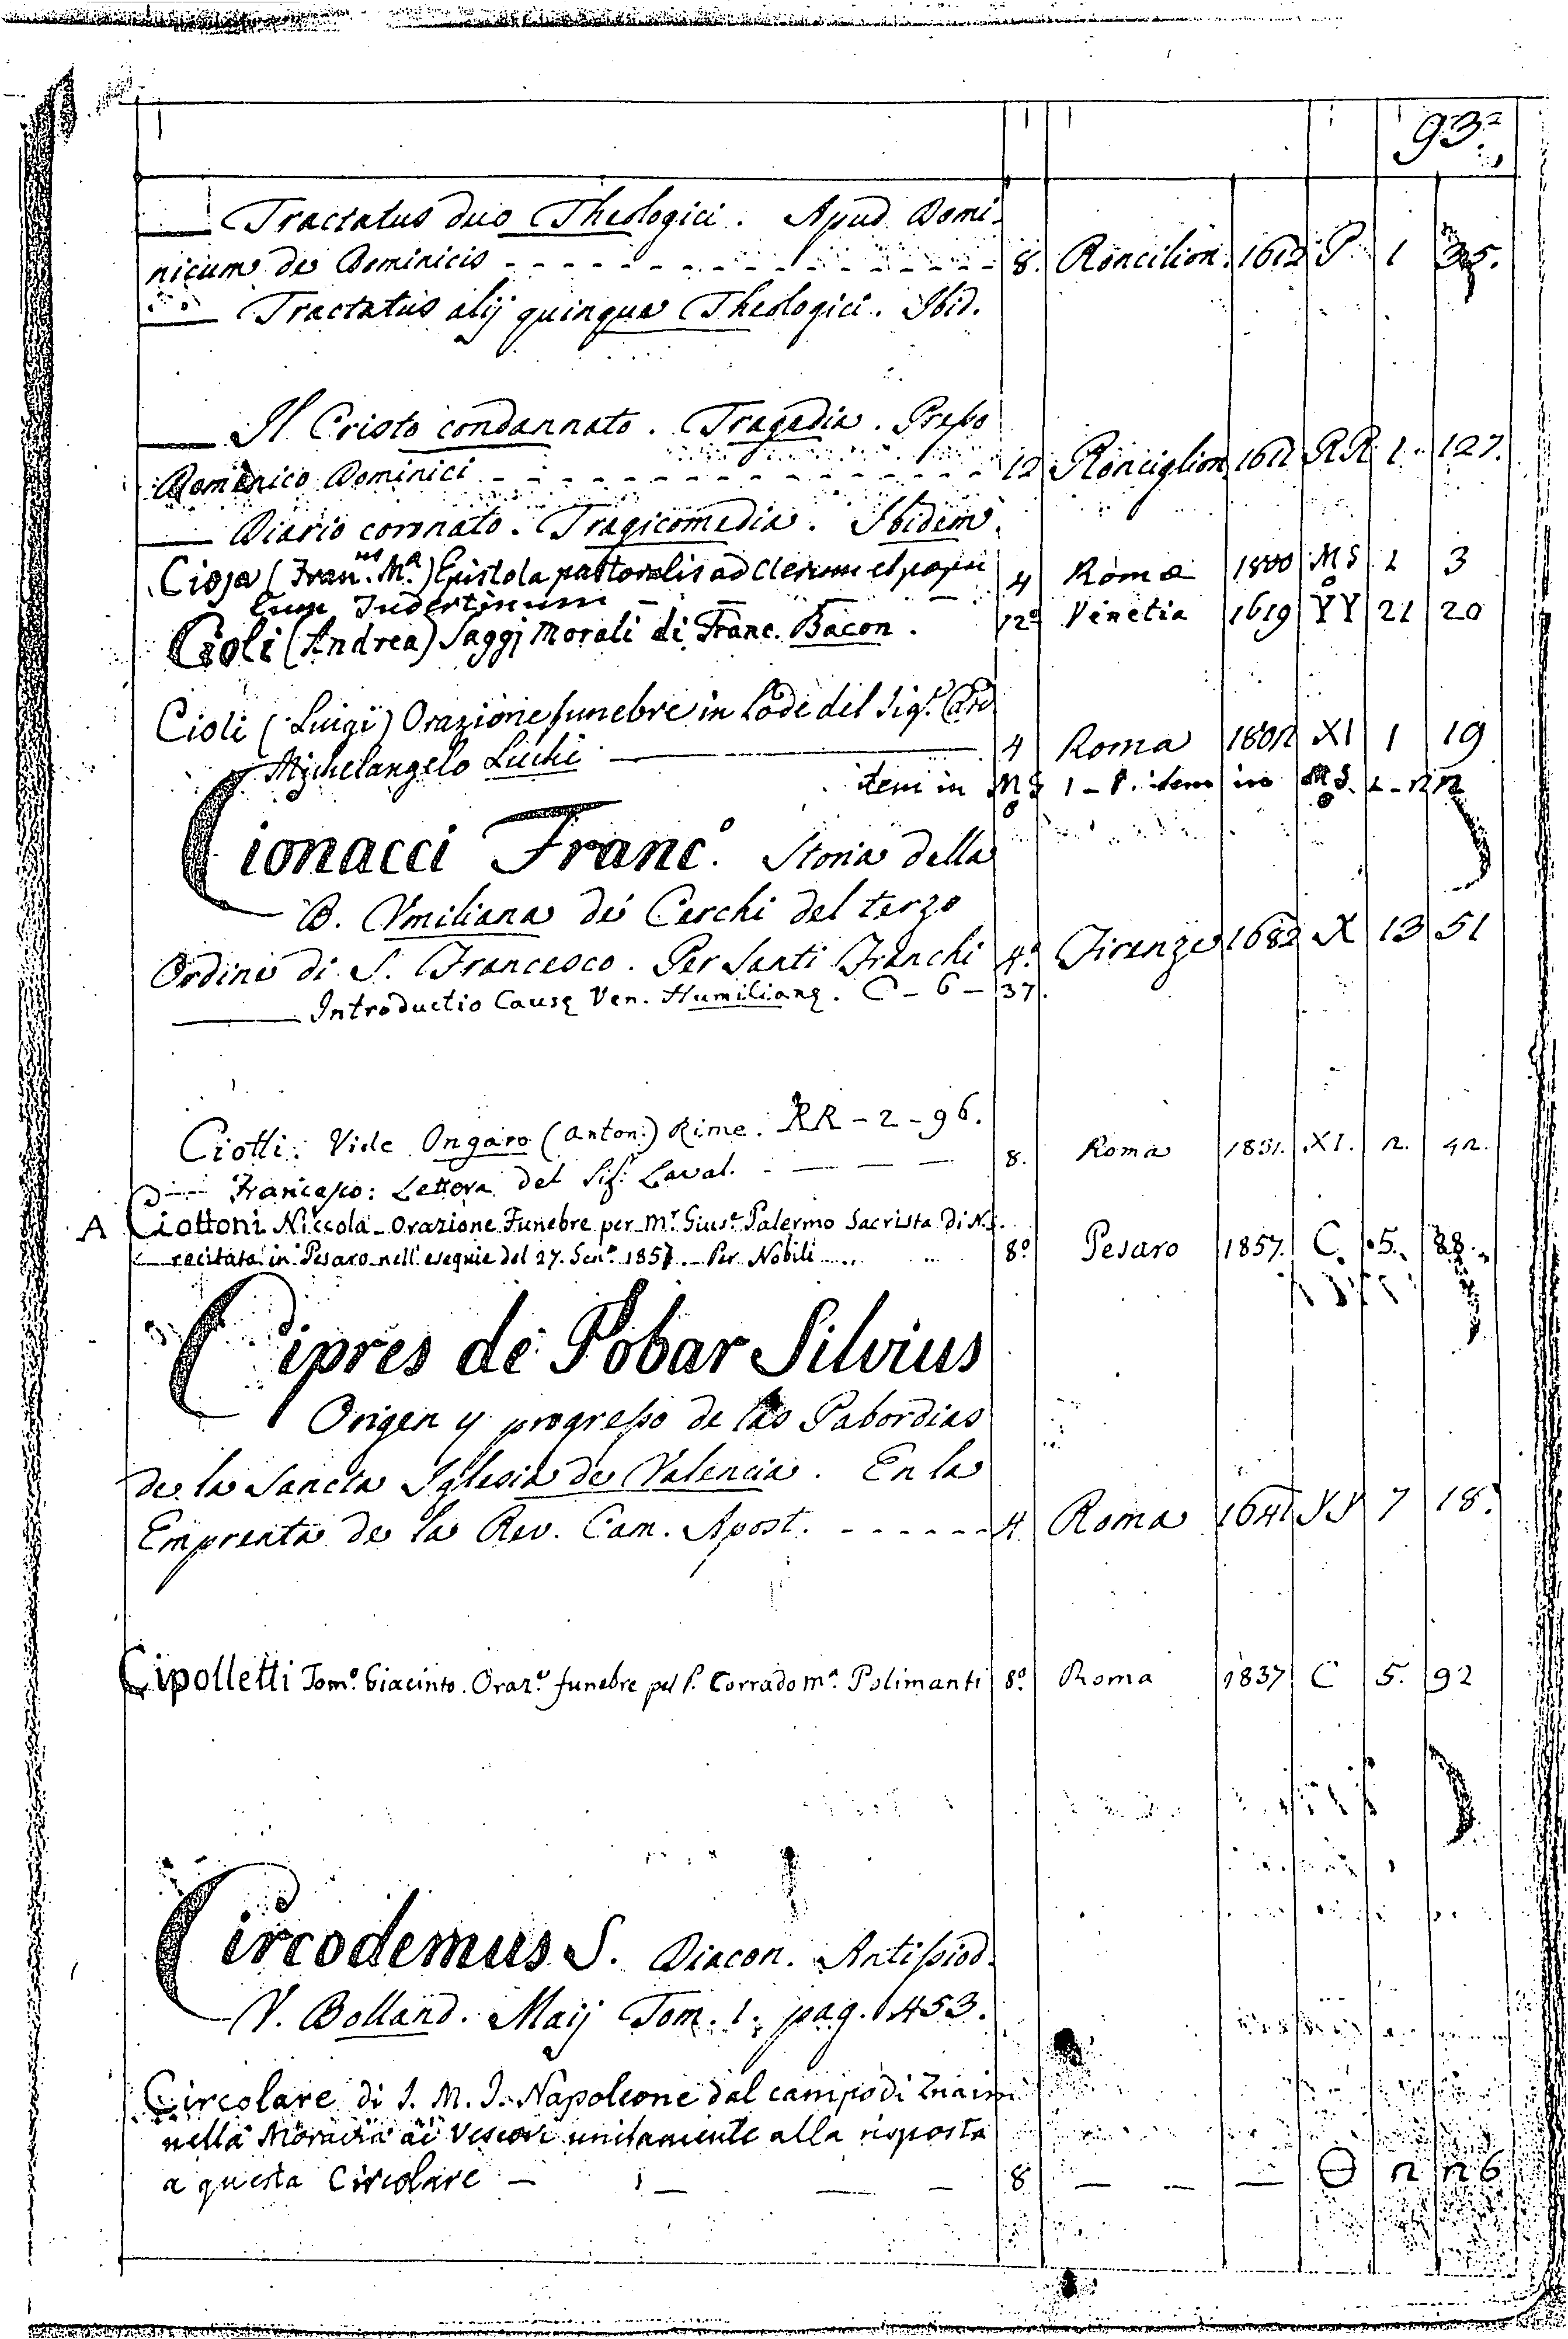 93.
— Tractatus duo Theologici. Apud Domi-
nicum de Dominicis - - - 8. Roncilion. 1612 P. 1 35.
— Tractatus alij quinque Theologici. Ibid.
— Il Cristo condannato. Tragedia. Presso
Domenico Dominici - - - 12 Ronciglion. 1612 RR 1. 127.
— Diario coronato. Tragicomedia. Ibidem.
Cioja (Fran.us M.a) Epistola pastoralis ad Clerum et popu
lum Tudertinum — 4 Roma 1800 MS 2 3
Cioli (Andrea) Saggj Morali di Franc. Bacon. 12º Venetia 1619 YY 21 20
Cioli (Luigi) Orazione funebre in Lode del Sig.r Card
Michelangelo Luchi — 4 Roma 1802 XI 1 19
item in MS 1 - 8. item in MS. 2 - 22
Cionacci Franc.º Storia della
B. Umiliana dei Cerchi del terzo
Ordine di S. Francesco. Per Santi Franchi 4º Firenze 1682 X 13 51
— Introductio Causę Ven. Humilianę. C - 6 - 37.
Ciotti. Vide Ongaro (Anton.) Rime. RR - 2 - 96.
— Francesco: Lettera del Sig.r Laval. - — — — 8. Roma 1831. XI. 2. 42.
A Ciottoni Niccola - Orazione Funebre per M.r Gius.e Palermo Sacrista di N.S.
— recitata in Pesaro nell'esequie del 27. Gen.º 1857 - Per Nobili 8º Pesaro 1857. C. 5. 88.
Cipres de Pobar Silvius
Origen y progresso de las Pabordias
de la Sancta Iglesia de Valencia. En la
Emprenta de la Rev. Cam. Apost. - - - 4 Roma 1641 YY 7 18.
Cipolletti Tom.º Giacinto. Oraz.e funebre pel P. Corrado M.a Polimanti 8º Roma 1837 C 5. 92
Circodemus S. Diacon. Antissiod.
V. Bolland. Maij Tom. 1. pag. 453.
Circolare di S. M. I. Napoleone dal campo di Znaim
nella Moravia ai Vescovi unitamente alla risposta
a questa Circolare — 8 — — — Θ 2 26